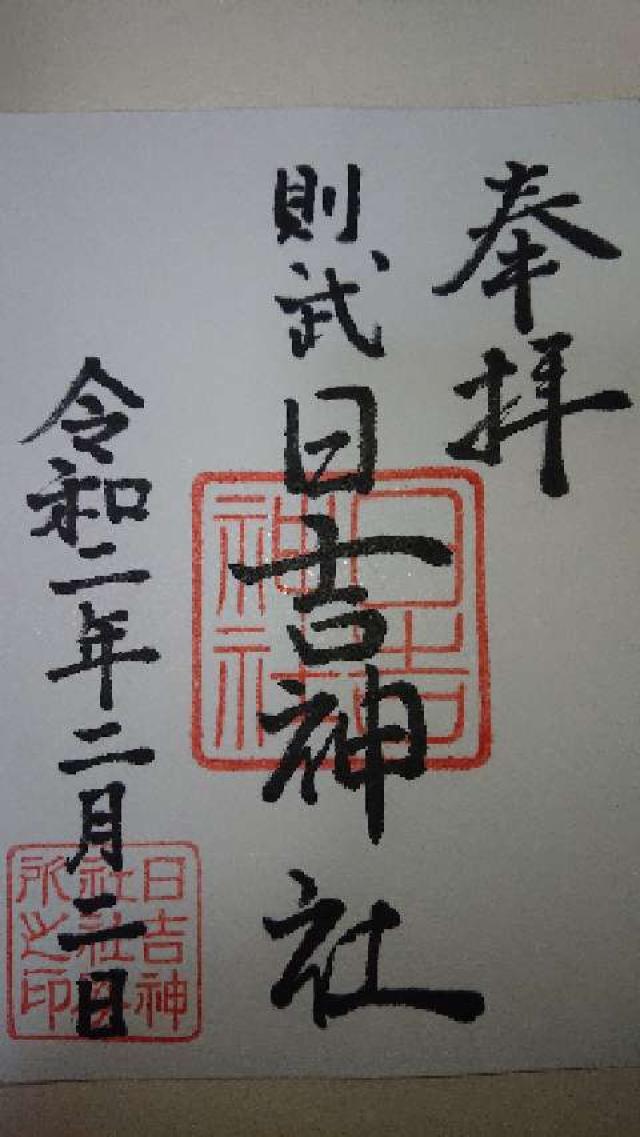 奉拝
則武日吉神社
日吉神社
令和二年二月二日
日吉神
社社務
所之印